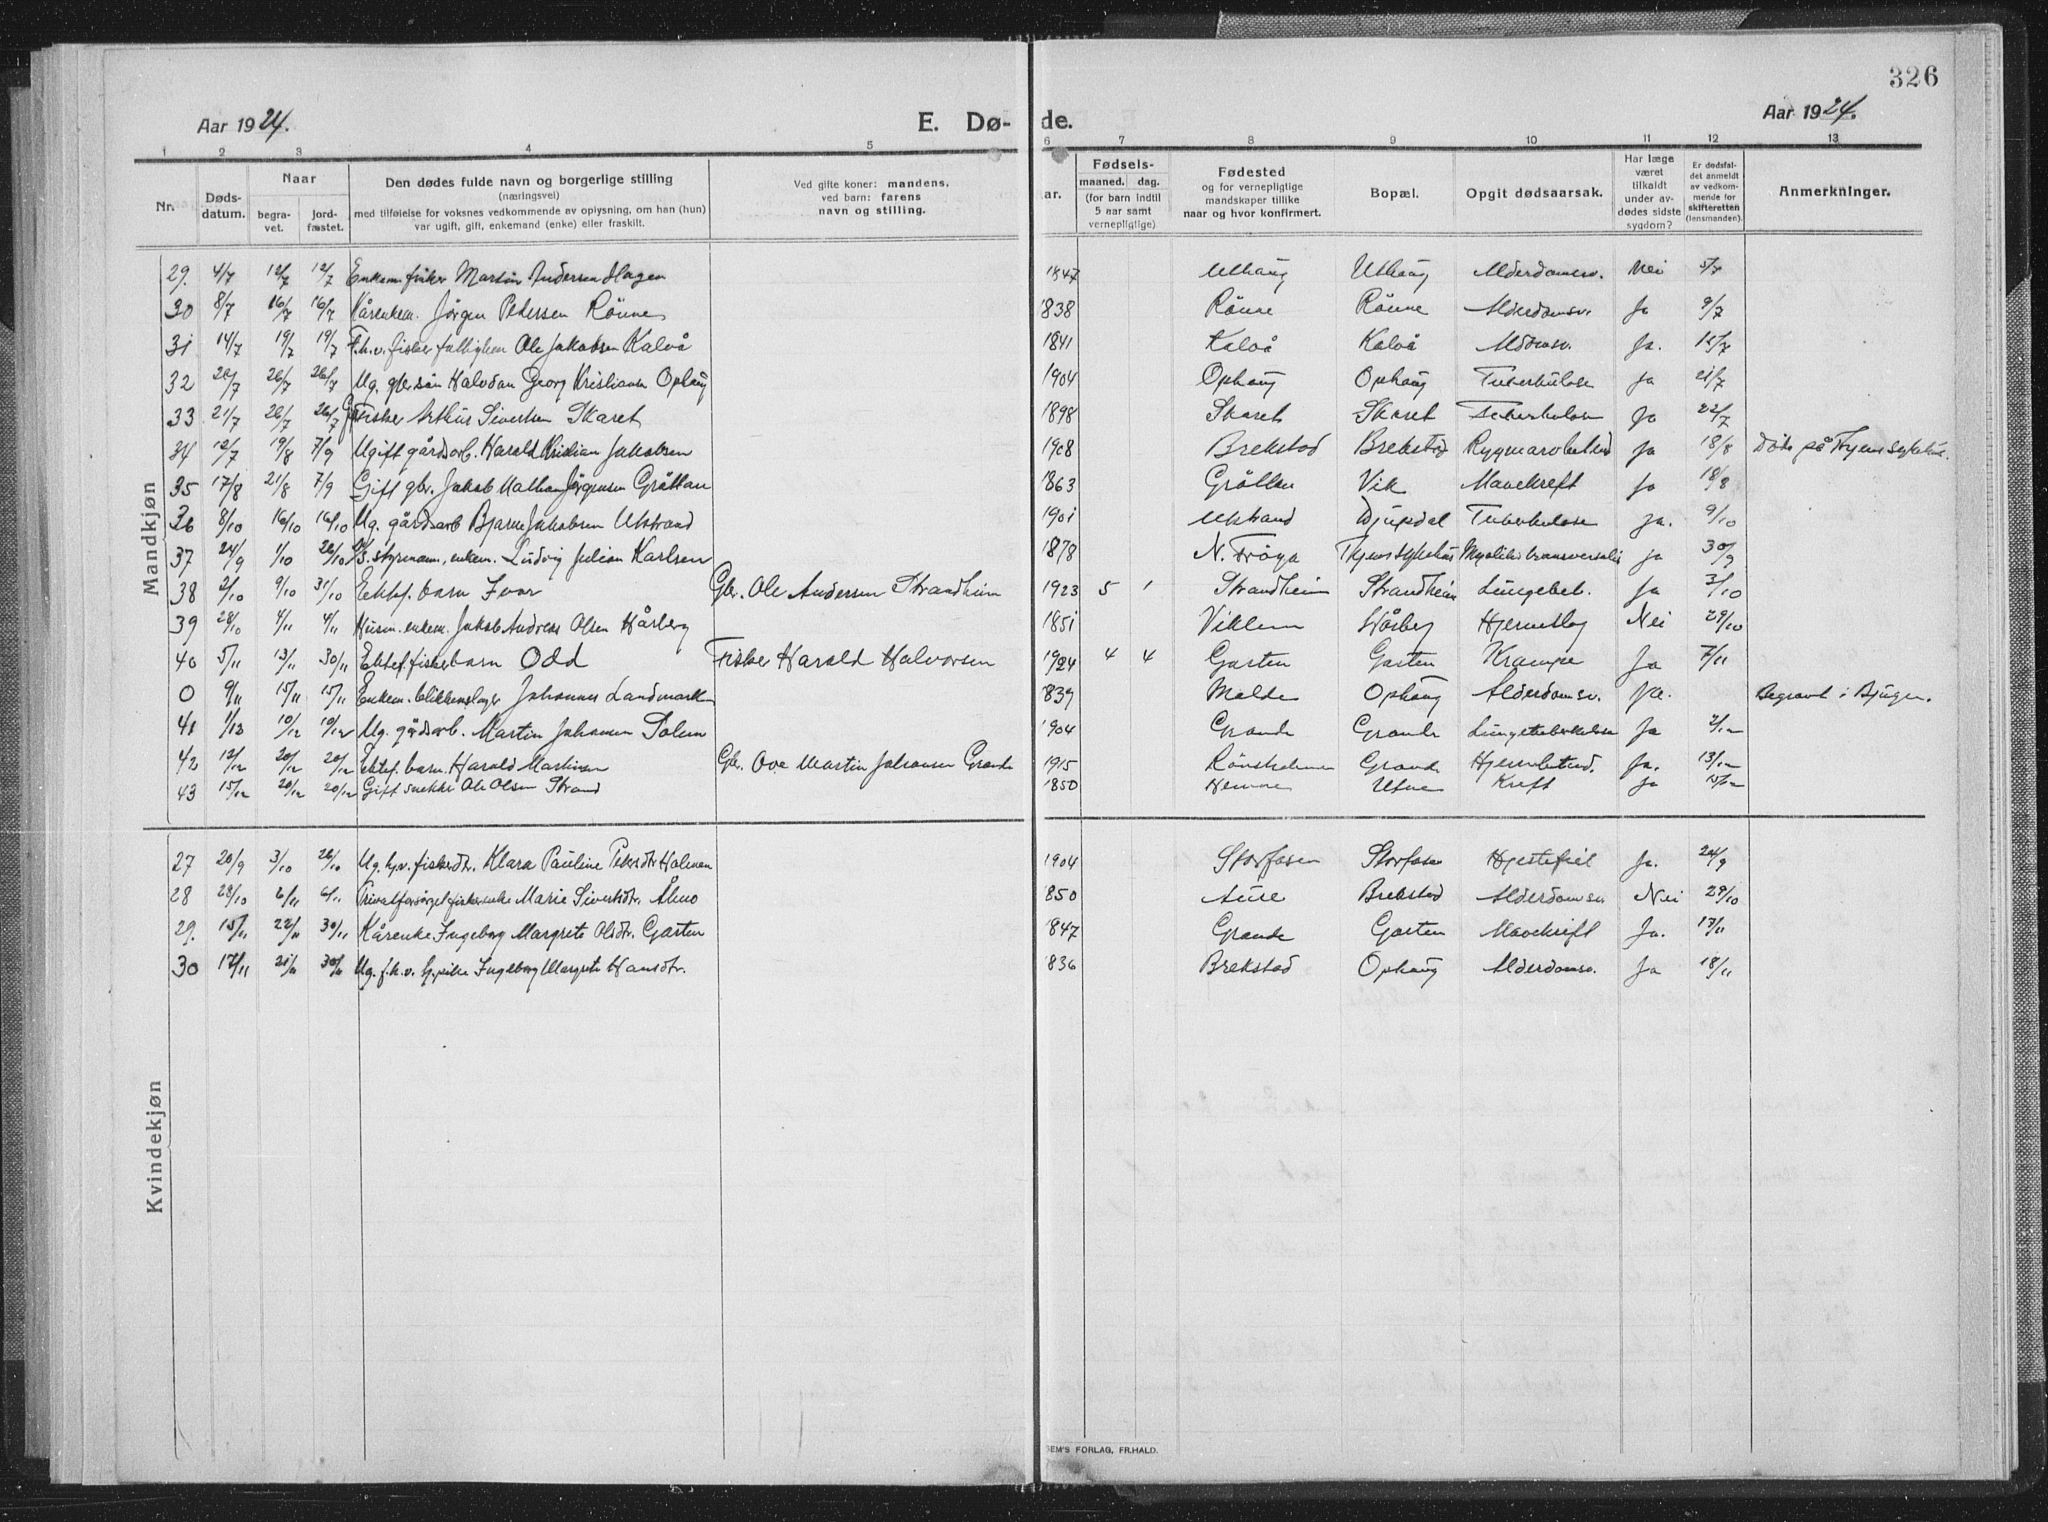 326
Aar 1924.
E. Dø-
de.
Aar 1924.
1 2 3 4 5 6 7 8 9 10 11 12 13
Nr.
Døds-
datum.
Naar
begra-
vet.
jord-
fæstet.
Den dødes fulde navn og borgerlige stilling
(næringsvei)
med tilføielse for voksnes vedkommende av oplysning, om han (hun)
var ugift, gift, enkemand (enke) eller fraskilt.
Ved gifte koner: mandens.
ved barn: farens
navn og stilling.
ar.
Fødsels-
maaned. dag.
(for barn indtil
5 aar samt
vernepligtige)
Fødested
og for vernepligtige
mandskaper tillike
naar og hvor konfirmert.
Bopæl.
Opgit dødsaarsak.
Har læge
været
tilkaldt
under av-
dødes sidste
sygdom?
Er dødsfal-
det anmeldt
av vedkom-
mende for
skifteretten
(lensmanden).
Anmerkninger.
Mandkjøn
29. 4/7 12/7 12/7 Enkem. fisker Martin Andersen Hagen 1847 Uthaug Uthaug Alderdomsv. Nei 5/7
30 8/7 16/7 16/7 Kårenkem. Jørgen Petersen Rönne 1838 Rönne Rönne Alderdomsv. Ja 9/7
31 14/7 19/7 19/7 F.h.v. fisker fattiglem Ole Jakobsen Kalvå 1841 Kalvå Kalvå Ja. 15/7
32 20/7 26/7 26/7 Ug. gbr.sön Halvdan Georg Kristiansen Ophaug 1904 Ophaug Ophaug Tuberkulose ja 21/7
33 21/7 26/7 26/7 Fisker Arthur Sivertsen Skaret 1898 Skaret Skaret Tuberkulose Ja 22/7
34 12/7 19/8 7/9 Ugift gårdsarb. Harald Kristian Jakobsen 1908 Brekstad Brekstad ja 18/8 Döde på Trhjems sykehus.
35 17/8 21/8 7/9 Gift gbr. Jakob Mathias Jørgensen Gröttan 1863 Gröttan Vik Mavekreft ja 18/8
36 8/10 16/10 16/10 Ug. gårdsarb Bjarne Jakobsen Utstrand 1901 Utstrand Djupdal Tuberkulose ja. 9/10
37 24/9 1/10 26/10 styrmann, enkem. Ludvig Julian Karlsen 1878 N. Fröya Trhjems sykehus Myelitis transversalis ja 30/9
38 2/10 9/10 31/10 Ektef. barn Ivar Gbr. Ole Andersen Strandheim 1923 5 1 Strandheim Strandheim Lungebet. Ja 3/10
39 28/10 4/11 4/11 Husm. enkem. Jakob Andreas Olsen Hårberg 1851 Viklem Hårberg Hjerneslag Nei 29/10
40 5/11 13/11 30/11 Ektef. fiskerbarn Odd Fisker Harald Halvorsen 1924 4 4 Garten Garten Krampe Ja 7/11
0 9/11 15/11 15/11 Enkem. blikkenslager Johannes Landmark 839 Molde Ophaug Alderdomsv. ja. Begravet i Bjugn.
41 1/12 10/12 10/12 Ug. gårdsarb. Martin Johansen Solem 1904 Grande Grande Lungetuberkulose Ja 2/12
42 12/12 20/12 20/12 Ektef. barn. Harald Martinsen Gbr. Ove Martin Johansen Grande 1915 Grande Hjernebetend. Ja. 13/12
43 15/12 20/12 20/12 Gift snekker Ole Olsen Strand 1850 Hemne Kreft Ja 15/12
Kvindekjøn
27 20/9 3/10 26/10 Ug. hjv. fiskerdt. Klara Pauline Petersdtr. Holmen 1904 Storfosen Storfosen Hjertefeil Ja. 24/9
28 28/10 6/11 6/11 Privatforsörget fiskerenke Marie Sivertsdtr. Åmo 850 Aure Brekstad Alderdomsv Nei 29/10
29. 15/11 22/11 30/11 Kårenke Ingeborg Margrete Olsdtr. Garten 847 Grande Garten Mavekreft Ja. 17/11
30 17/11 21/11 30/11 Ug. f.h.v. Ingeborg Margrete Hansdtr. 836 Brekstad Ophaug Alderdomsv. Ja 18/11
SEM'S FORLAG, FR.HALD.